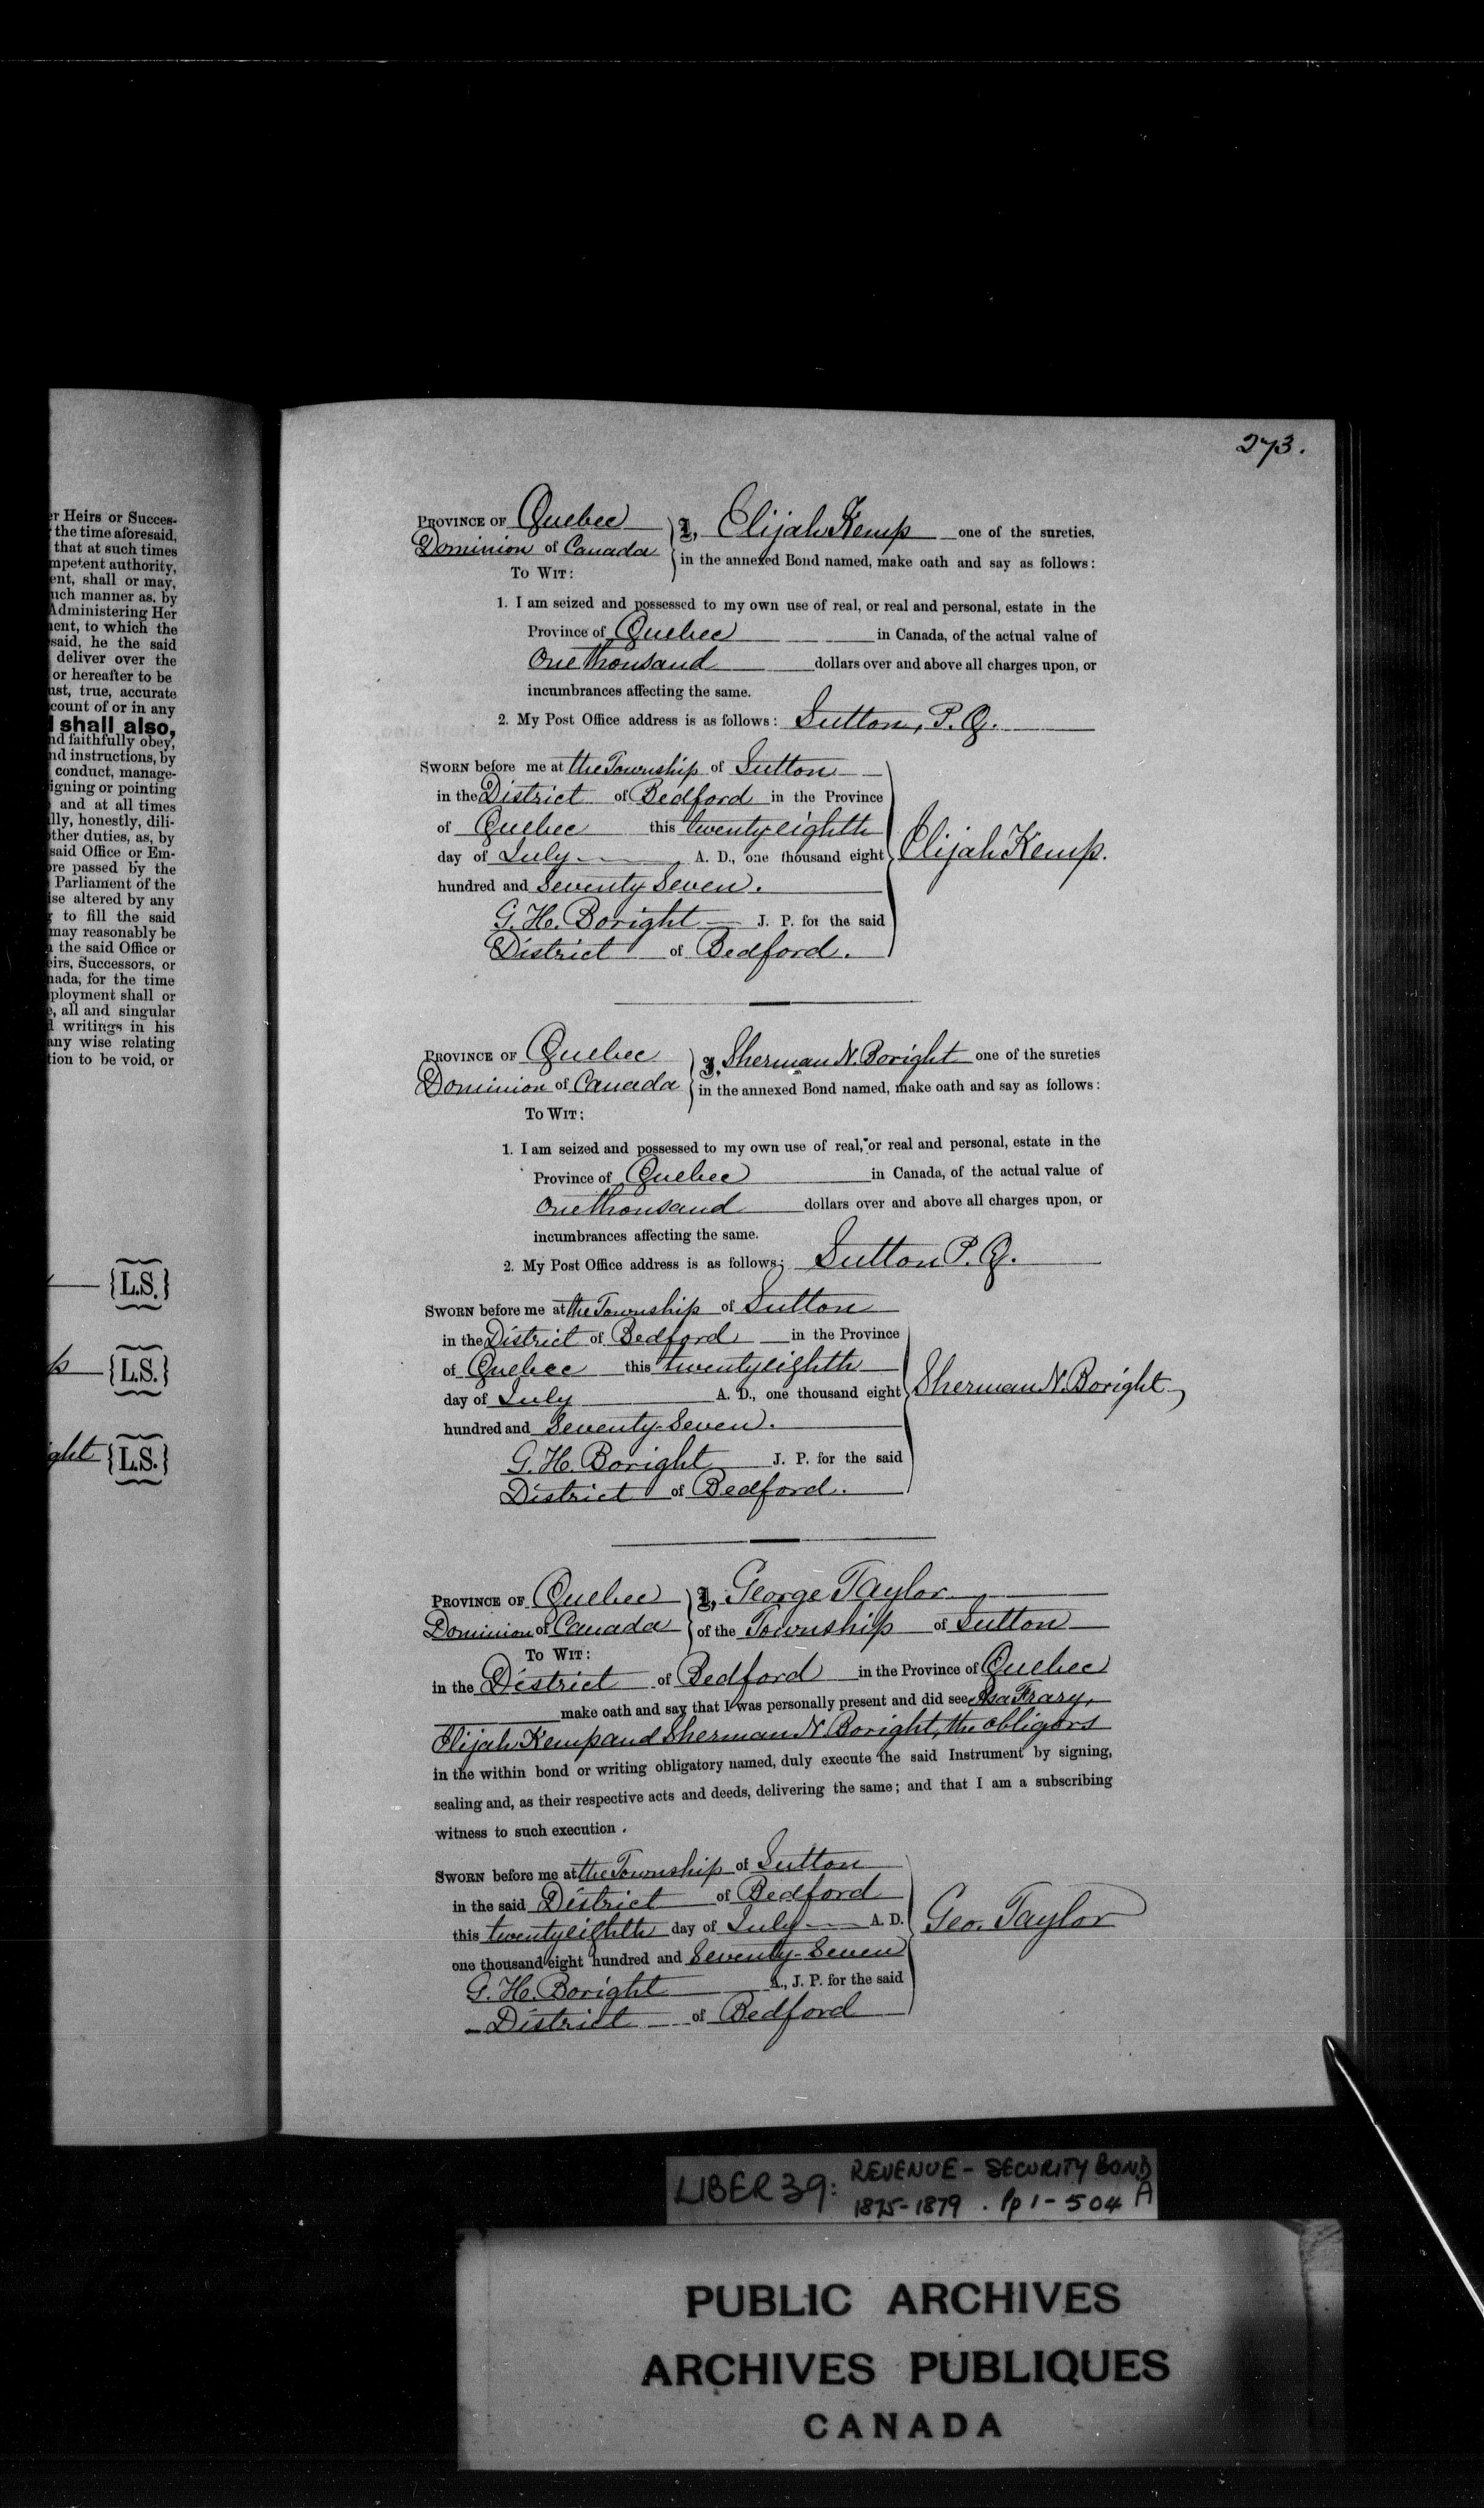 er Heirs or Succes-
the time aforesaid,
that at such times
mpetent authority,
ent, shall or may,
uch manner as, by
Administering Her
ment, to which the
said, he the said
deliver over the
or hereafter to be
ust, true, accurate
count of or in any
shall also,
nd faithfully obey,
nd instructions, by
conduct, manage-
igning or pointing
and at all times
lly, honestly, dili-
ther duties, as, by
said Office or Em-
ore passed by the
Parliament of the
ise altered by any
to fill the said
may reasonably be
the said Office or
eirs, Successors, or
nada, for the time
ployment shall or
, all and singular
writings in his
any wise relating
tion to be void, or
{L.S.}
p {L.S.}
ght {L.S.}
273.
PROVINCE OF Quebec
Dominion of Canada
TO WIT:
I, Elijah Kemp one of the sureties,
in the annexed Bond named, make oath and say as follows:
1. I am seized and possessed to my own use of real, or real and personal, estate in the
Province of Quebec in Canada, of the actual value of
One thousand dollars over and above all charges upon, or
incumbrances affecting the same.
2. My Post Office address is as follows: Sutton, P. Q.
SWORN before me at the Township of Sutton
in the District of Bedford in the Province
of Quebec this twenty eighth
day of July A. D., one thousand eight
hundred and Seventy Seven.
G. H. Boright J. P. for the said
District of Bedford.
Elijah Kemp.
PROVINCE OF Quebec
Dominion of Canada
TO WIT:
I, Sherman N. Boright one of the sureties
in the annexed Bond named, make oath and say as follows:
1. I am seized and possessed to my own use of real, or real and personal, estate in the
Province of Quebec in Canada, of the actual value of
One thousand dollars over and above all charges upon, or
incumbrances affecting the same.
2. My Post Office address is as follows; Sutton P. Q.
SWORN before me at the Township of Sutton
in the District of Bedford in the Province
of Quebec this twenty eighth
day of July A. D., one thousand eight
hundred and Seventy-Seven.
G. H. Boright J. P. for the said
District of Bedford.
Sherman N. Boright
PROVINCE OF Quebec
Dominion of Canada
TO WIT:
I, George Taylor
of the Township of Sutton
in the District of Bedford in the Province of Quebec
make oath and say that I was personally present and did see Asa Frary,
Elijah Kemp and Sherman N Boright, the obligors
in the within bond or writing obligatory named, duly execute the said Instrument by signing,
sealing and, as their respective acts and deeds, delivering the same; and that I am a subscribing
witness to such execution.
SWORN before me at the Township of Sutton
in the said District of Bedford
this twenty eighth day of July A. D.
one thousand eight hundred and Seventy-Seven
G. H. Boright A., J. P. for the said
District of Bedford
Geo. Taylor
LIBER 39: REVENUE - SECURITY BOND
1875-1879. Pp 1-504 A
PUBLIC ARCHIVES
ARCHIVES PUBLIQUES
CANADA